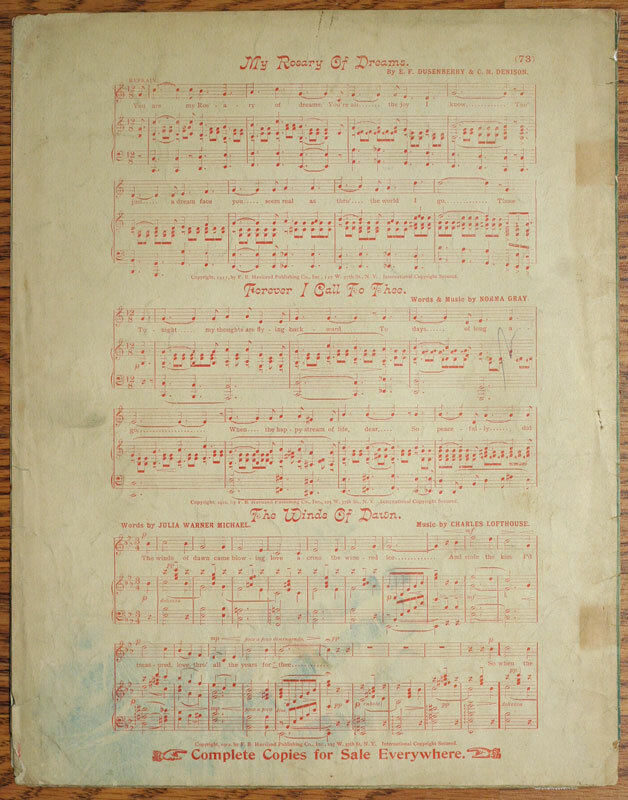 My Rosary Of Dreams.
(73)
By E. F. DUSENBERRY & C. M. DENISON.
REFRAIN
You are my Ros - a - ry of dreams, You're all the joy I know, Tho'
just a dream face you seem real as thro' the world I go, Times
Copyright, by F. B. Haviland Publishing Co., Inc., W. 37th St., N. Y. International Copyright Secured.
Forever I Call To Thee.
Words & Music by NORMA GRAY.
To - night my thoughts are fly - ing back - ward To days of long a -
go, When the hap - py stream of life, dear, So peace - ful - ly did
Copyright, by F. B. Haviland Publishing Co., Inc., W. 37th St., N. Y. International Copyright Secured.
The Winds Of Dawn.
Words by JULIA WARNER MICHAEL.
Music by CHARLES LOFTHOUSE.
mf
The winds of dawn came blow - ing love a - cross the wine - red lea And stole the kiss I'd
p
dolcezza
mp poco a poco pp
treas - ured, love, thro' all the years for thee So when the
mp poco a poco
p
dolcezza
Copyright, by F. B. Haviland Publishing Co., Inc., W. 37th St., N. Y. International Copyright Secured.
Complete Copies for Sale Everywhere.